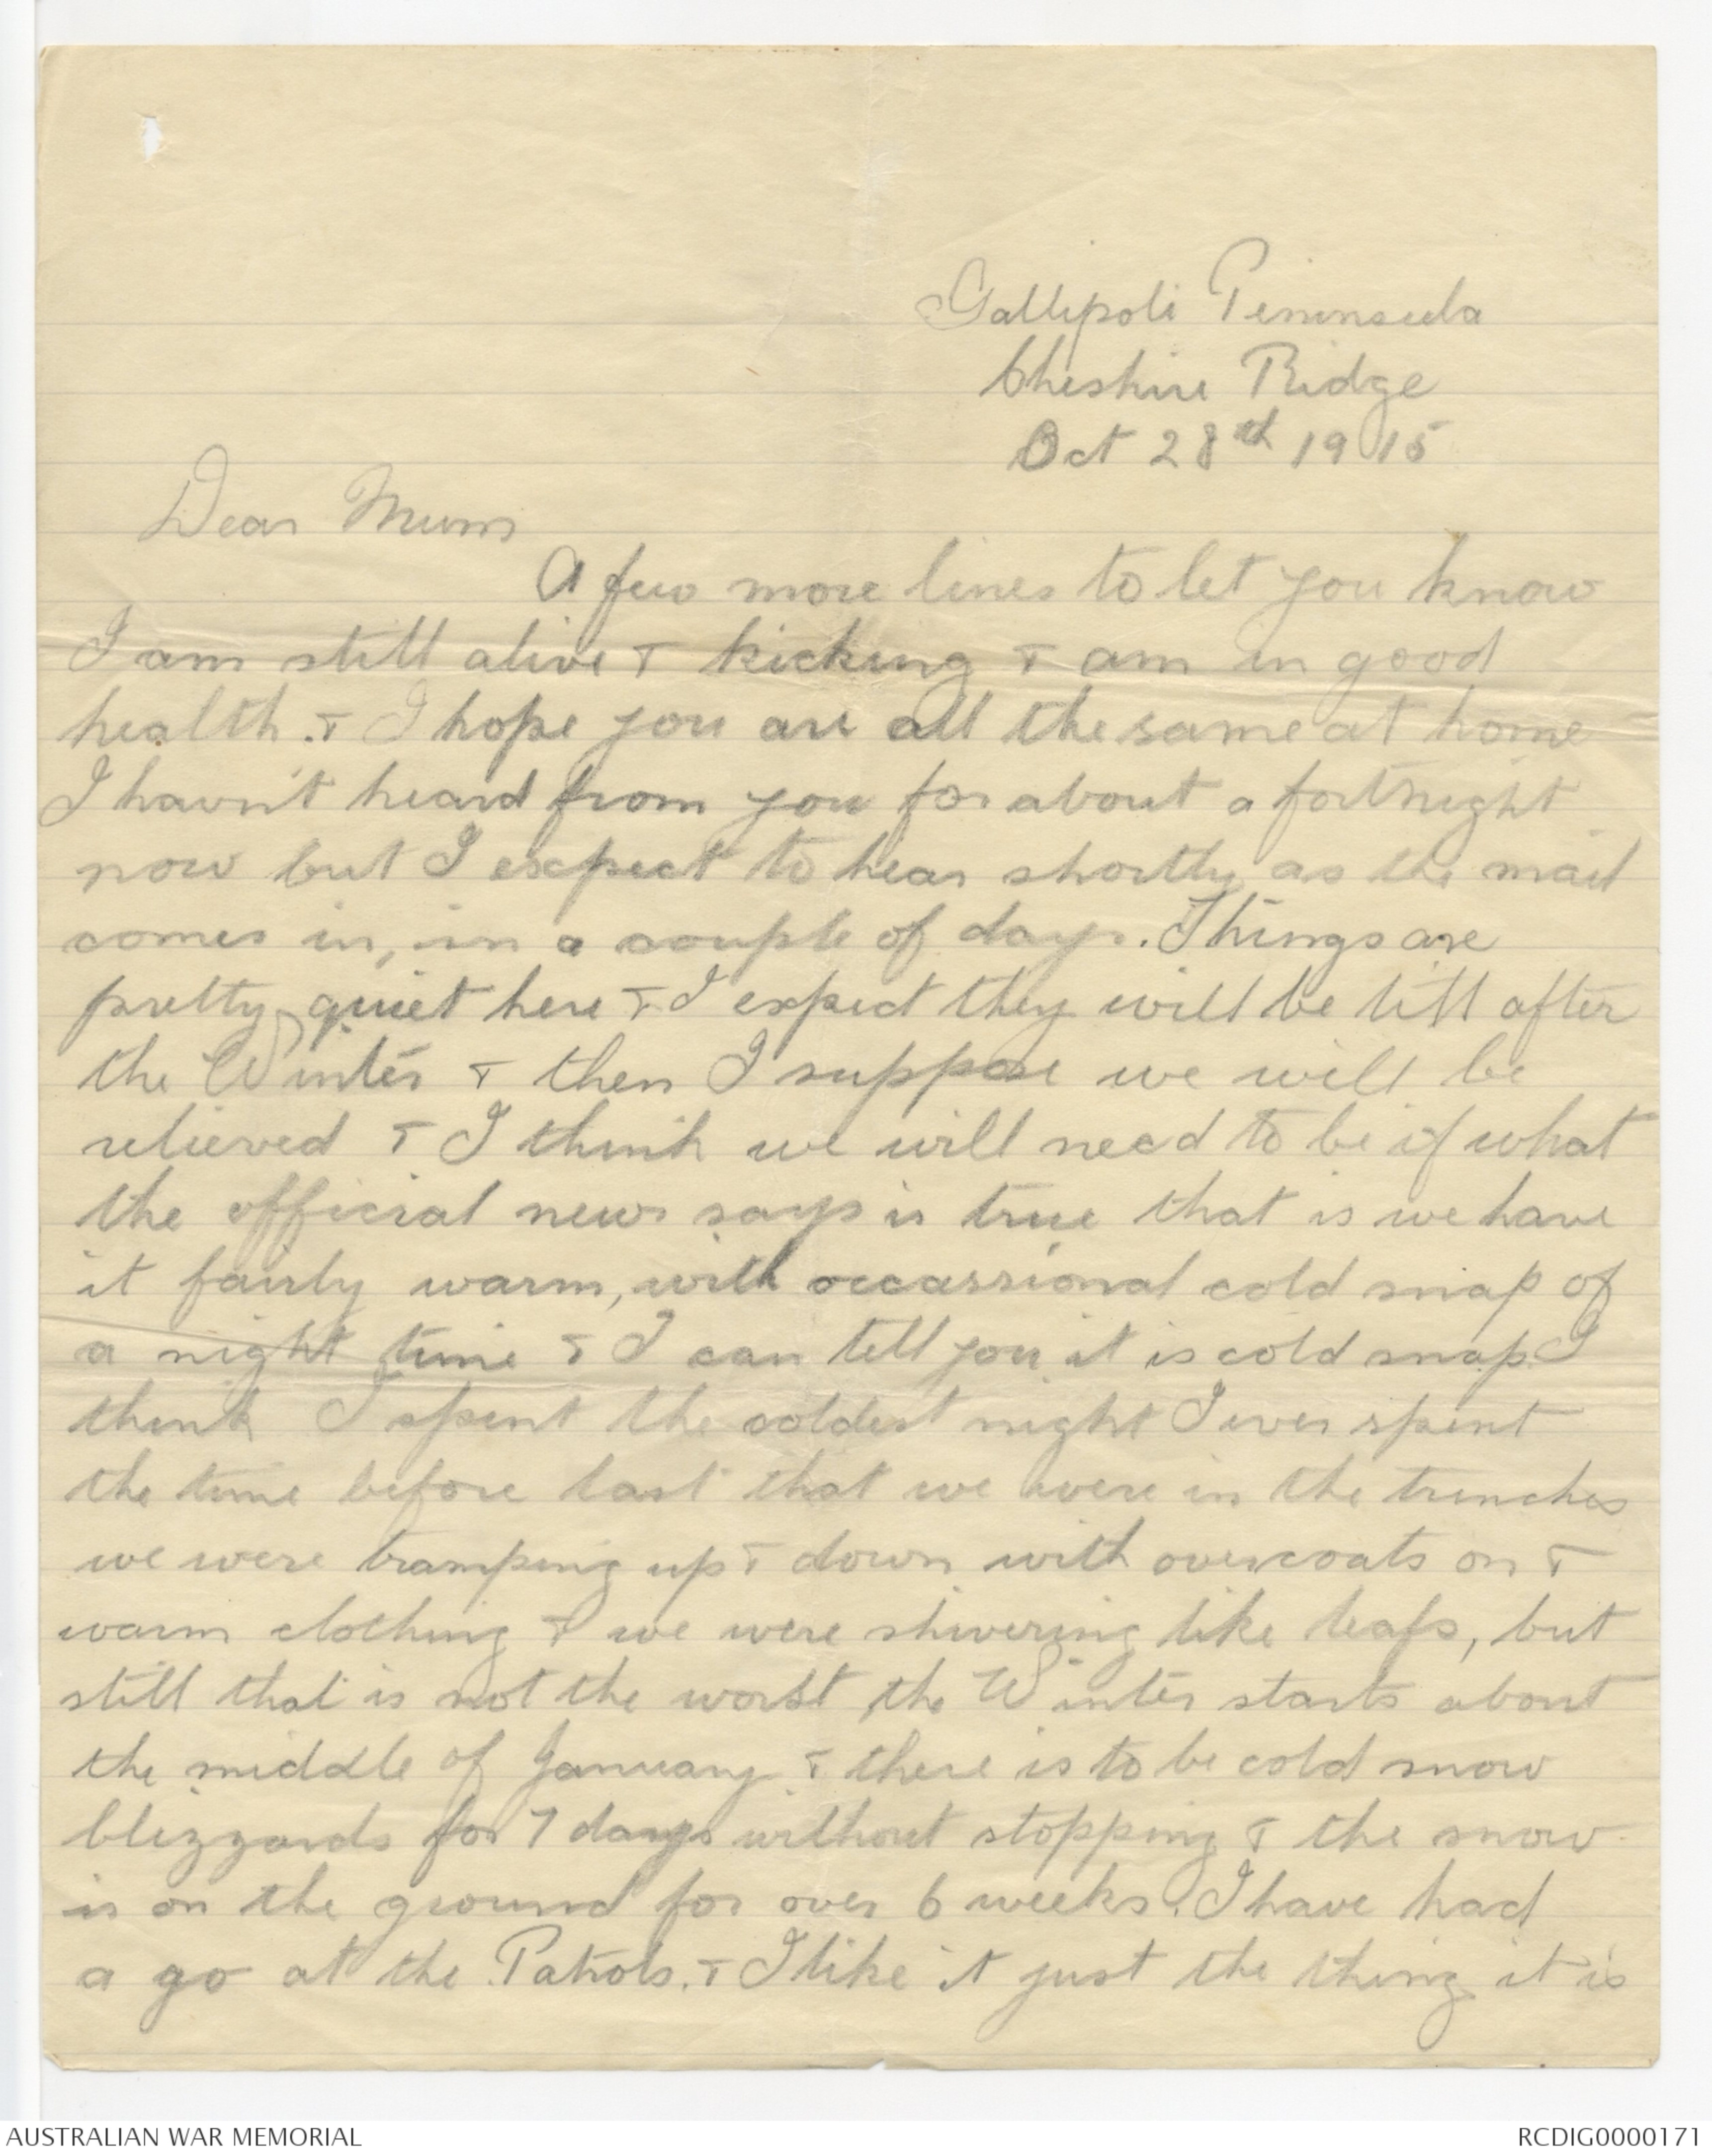 Gallipoli Peninsula
Cheshire Ridge
Oct 28th 1915
Dear Mum
A few more lines to let you know
I am still alive & kicking & am in good
health. & I hope you are all the same at home
I havn't heard from you for about a fortnight
now but I expect to hear shortly as the mail
comes in, in a couple of days. Things are
pretty quiet here & I expect they will be till after
the Winter & then I suppose we will be
relieved & I think we will need to be if what
the official news says is true that is we have
it fairly warm, with occassional cold snap of
a night time & I can tell you it is cold snap. I
think I spent the coldest night I ever spent
the time before last that we were in the trenches
we were tramping up & down with overcoats on &
warm clothing & we were shivering like leafs, but
still that is not the worst the Winter starts about
the middle of January & there is to be cold snow
blizzards for 7 days without stopping & the snow
is on the ground for over 6 weeks. I have had
a go at the Patrols. & I like it just the thing it is
AUSTRALIAN WAR MEMORIAL
RCDIG0000171